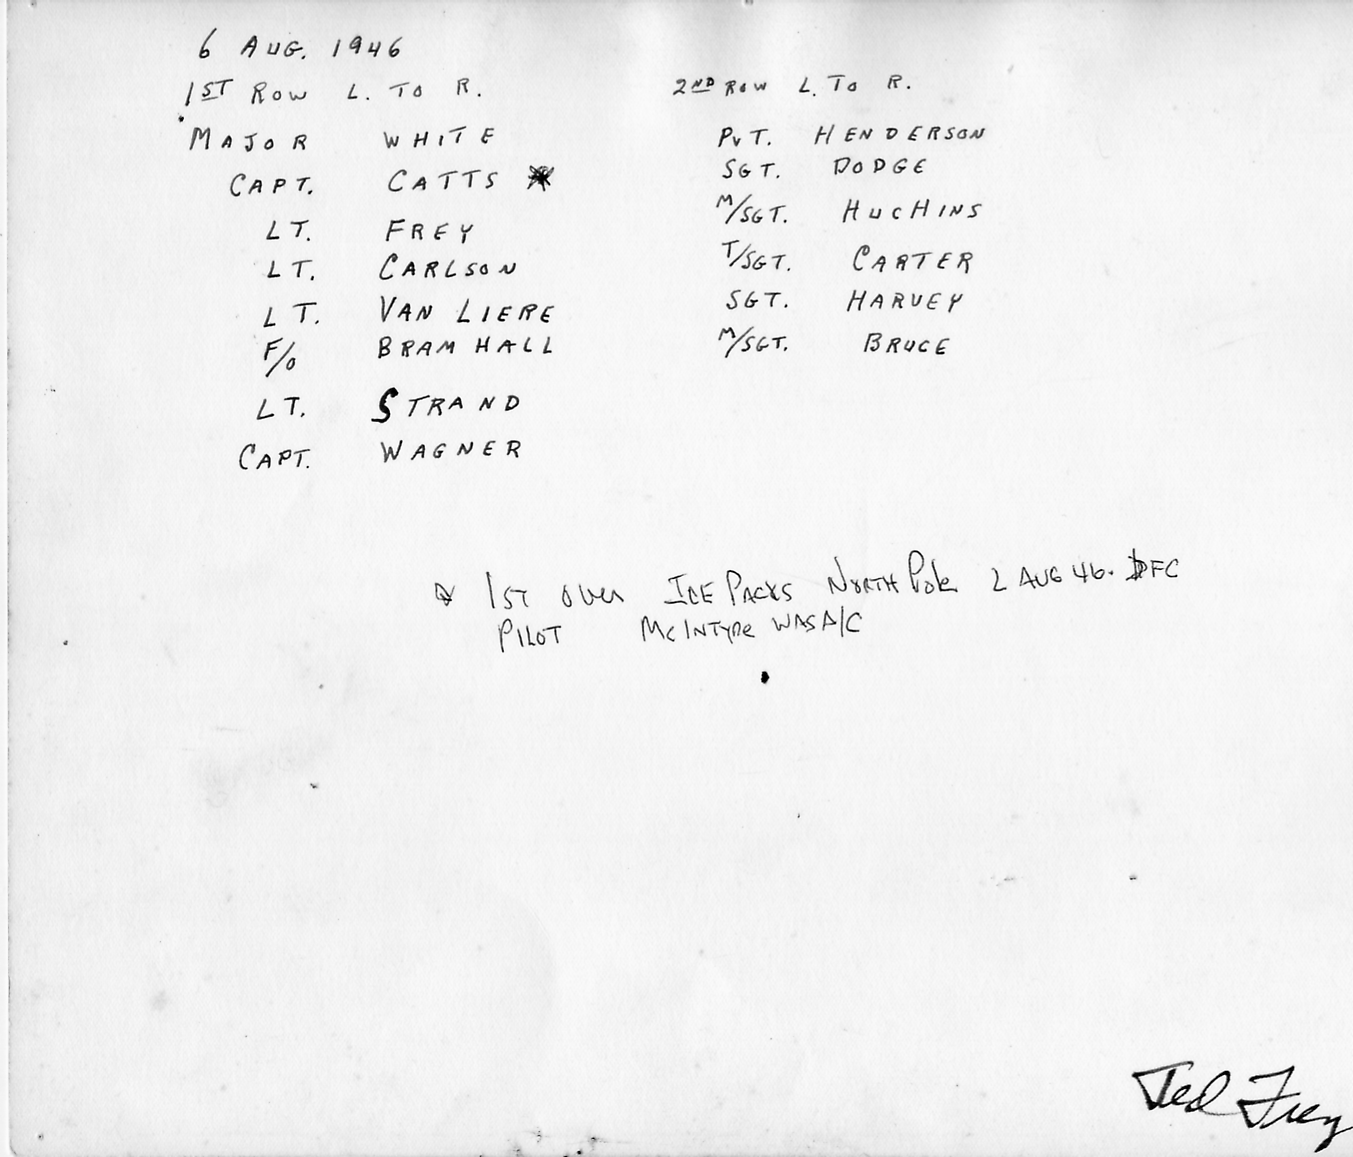 6 AUG. 1946
1ST ROW L. TO R.
MAJOR WHITE
CAPT. CATTS *
LT. FREY
LT. CARLSON
LT. VAN LIERE
F/O BRAMHALL
LT. STRAND
CAPT. WAGNER
2ND ROW L. TO R.
PVT. HENDERSON
SGT. DODGE
M/SGT. HUCHINS
T/SGT. CARTER
SGT. HARVEY
M/SGT. BRUCE
* 1ST OVER ICE PACKS NORTH Pole 2 AUG 46. DFC
PILOT McINTYRE WAS A/C
Ted Frey